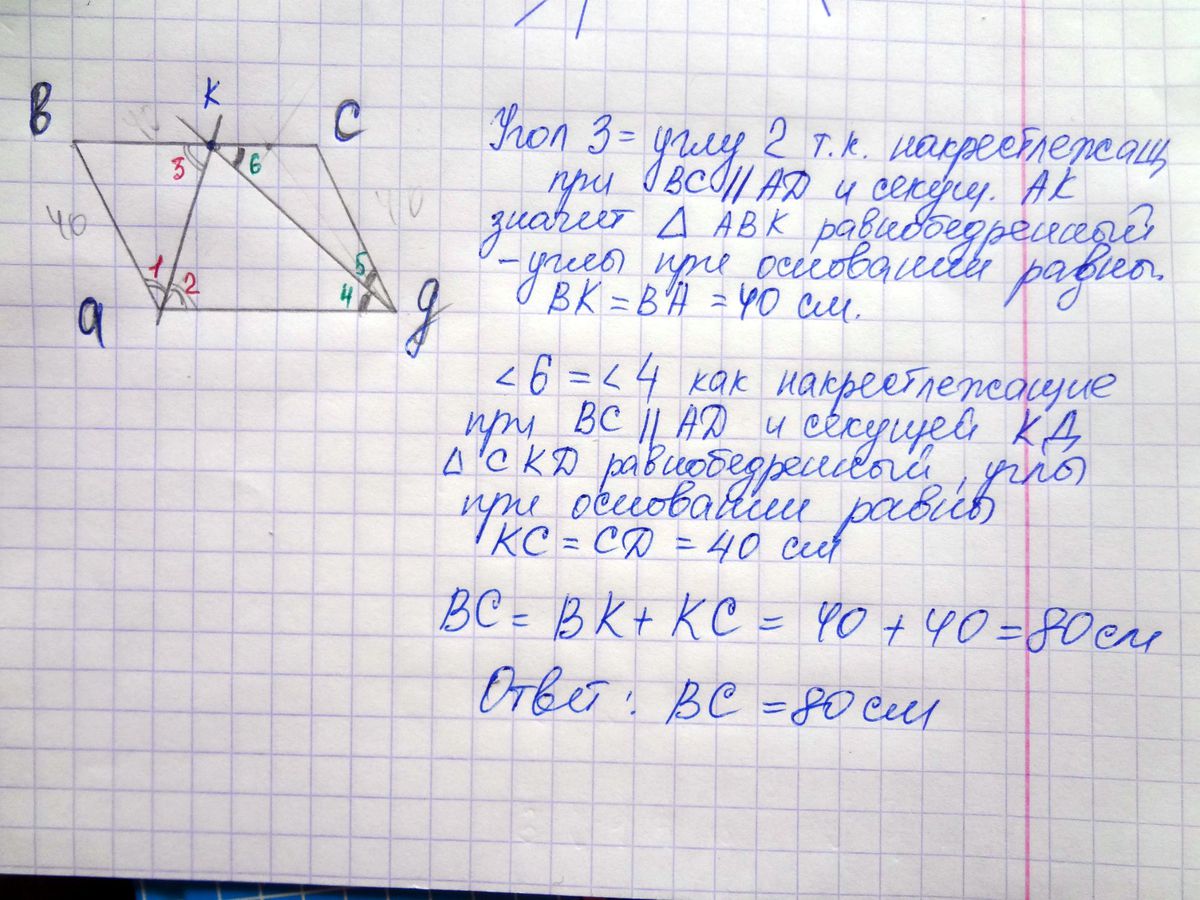 B
K
C
40
3
6
40
40
1
2
5
4
a
g
Угол 3 = углу 2 т.к. накрестлежащ
при BC || AD и секущ. AK
значит △ ABK равнобедренный
- углы при основании равны.
BK = BA = 40 см.
< 6 = < 4 как накрестлежащие
при BC || AD и секущей КД
△ CKD равнобедренный, углы
при основании равны
KC = CD = 40 см
BC = BK + KC = 40 + 40 = 80 см
Ответ: BC = 80 см